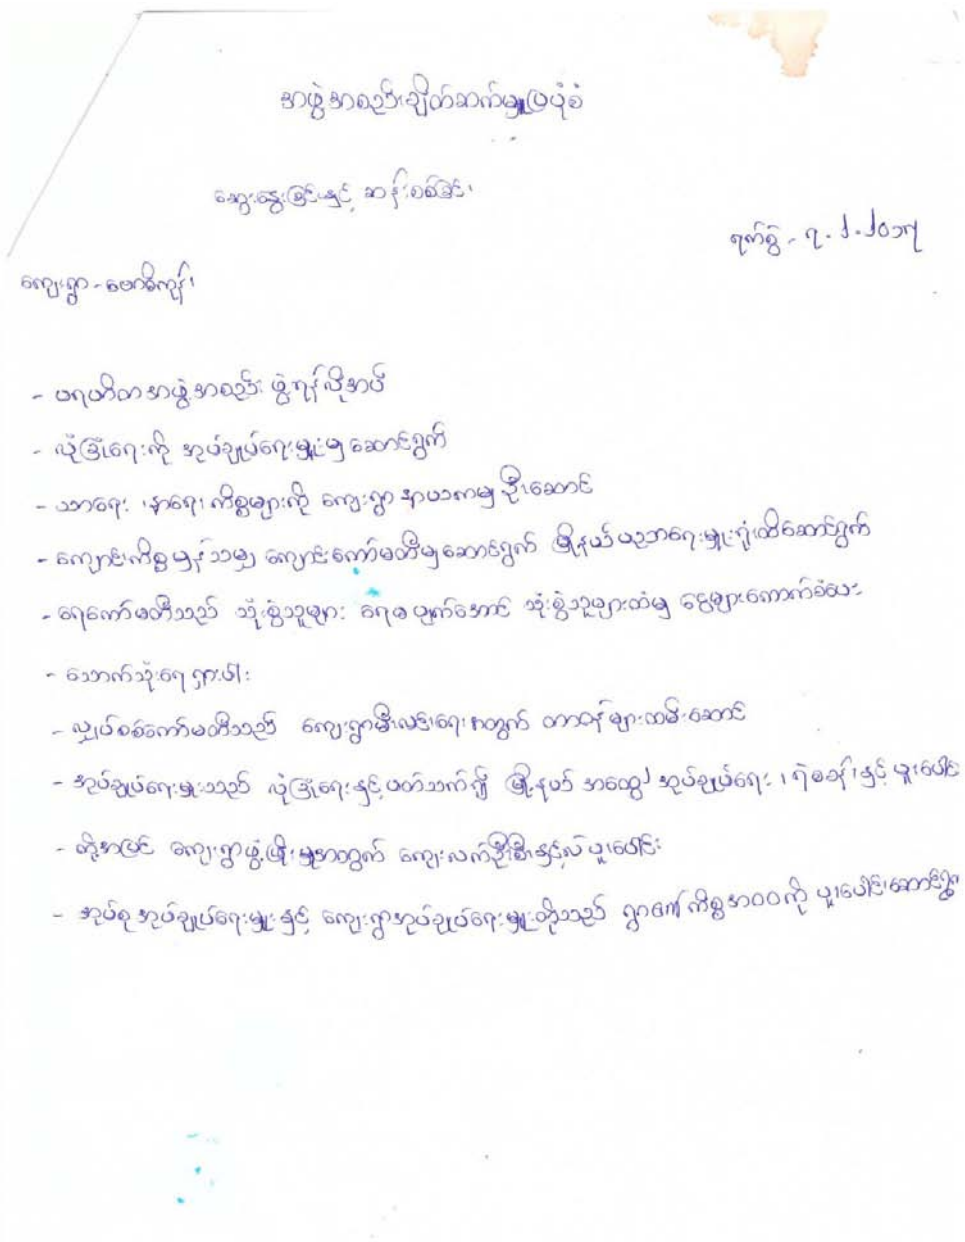 အဖွဲ့အစည်းချိတ်ဆက်မှုပြပုံစံ
ဆွေးနွေးခြင်းနှင့် ဆန်းစစ်ခြင်း
ရက်စွဲ - ၇.၂.၂၀၁၅
ကျေးရွာ - ဗောဓိကုန်း
- ပရဟိတအဖွဲ့အစည်း ဖွဲ့ရန်လိုအပ်
- လုံခြုံရေးကို အုပ်ချုပ်ရေးမှူးမှ ဆောင်ရွက်
- သာရေး ၊ နာရေး ကိစ္စများကို ကျေးရွာ နာယကမှ ဦးဆောင်
- ကျောင်းကိစ္စမှန်သမျှ ကျောင်းကော်မတီမှဆောင်ရွက် မြို့နယ်ပညာရေးမှူးရုံးထိဆောင်ရွက်
- ရေကော်မတီသည် သုံးစွဲသူများ ရေမပျက်အောင် သုံးစွဲသူများထံမှ ငွေများကောက်ခံပေး
- သောက်သုံးရေရှားပါး
- လျှပ်စစ်ကော်မတီသည် ကျေးရွာမီးလင်းရေးအတွက် တာဝန်များထမ်းဆောင်
- အုပ်ချုပ်ရေးမှူးသည် လုံခြုံရေးနှင့်ပတ်သက်၍ မြို့နယ် အထွေ/အုပ်ချုပ်ရေး ၊ ရဲစခန်းနှင့် ပူးပေါင်း
- ထို့အပြင် ကျေးရွာဖွံ့ဖြိုးမှုအတွက် ကျေးလက်ဦးစီးနှင့်လဲ ပူးပေါင်း
- အုပ်စုအုပ်ချုပ်ရေးမှူးနှင့် ကျေးရွာအုပ်ချုပ်ရေးမှူးတို့သည် ရွာ၏ကိစ္စအဝဝကို ပူးပေါင်းဆောင်ရွက်